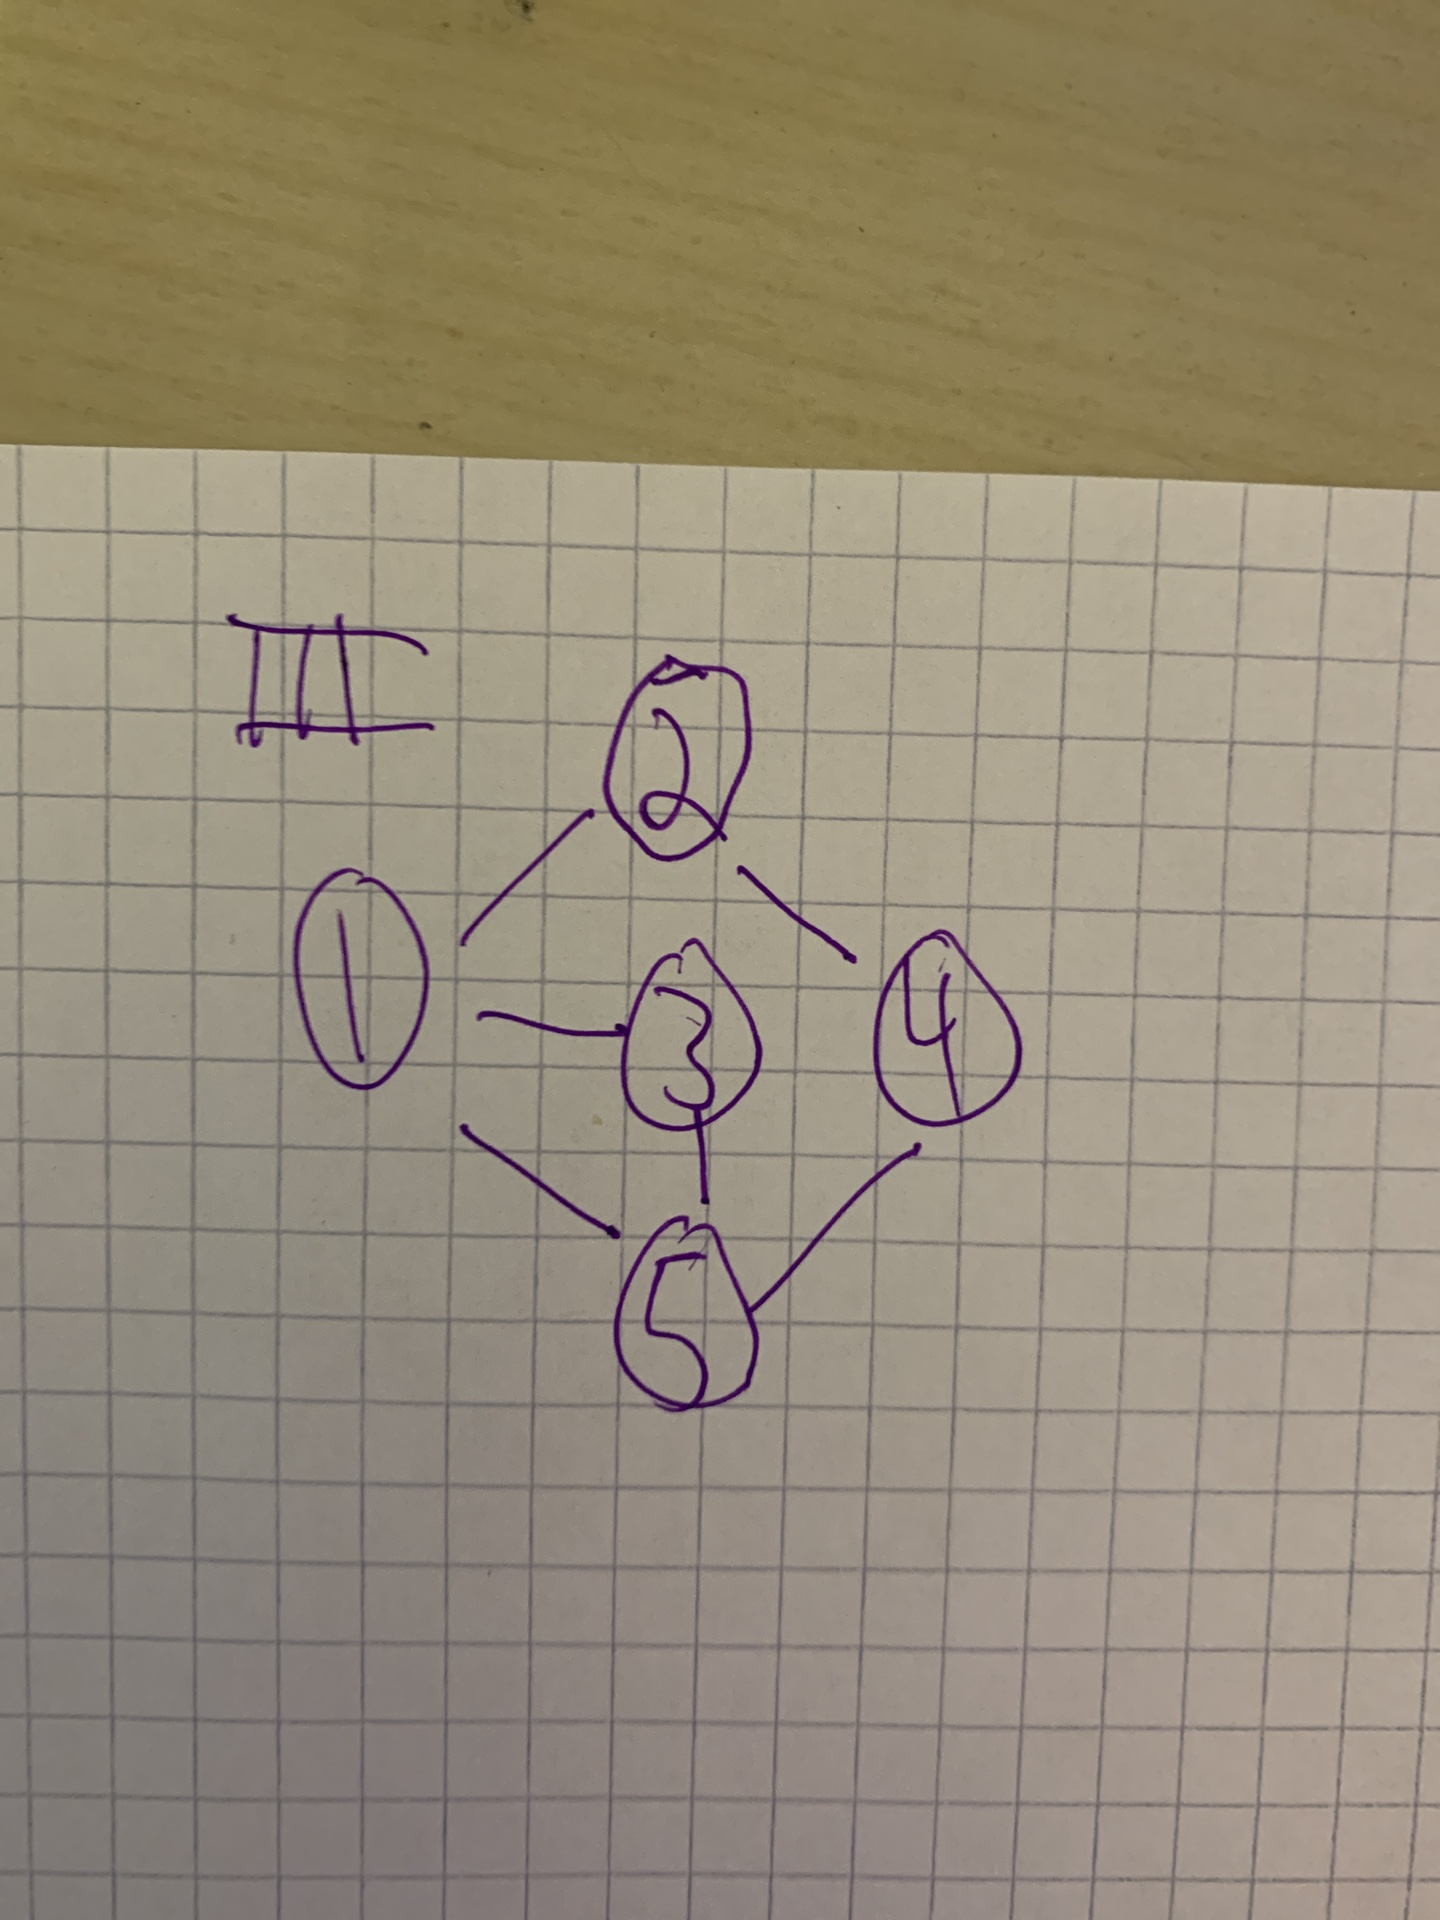 III
2
1
3
4
5